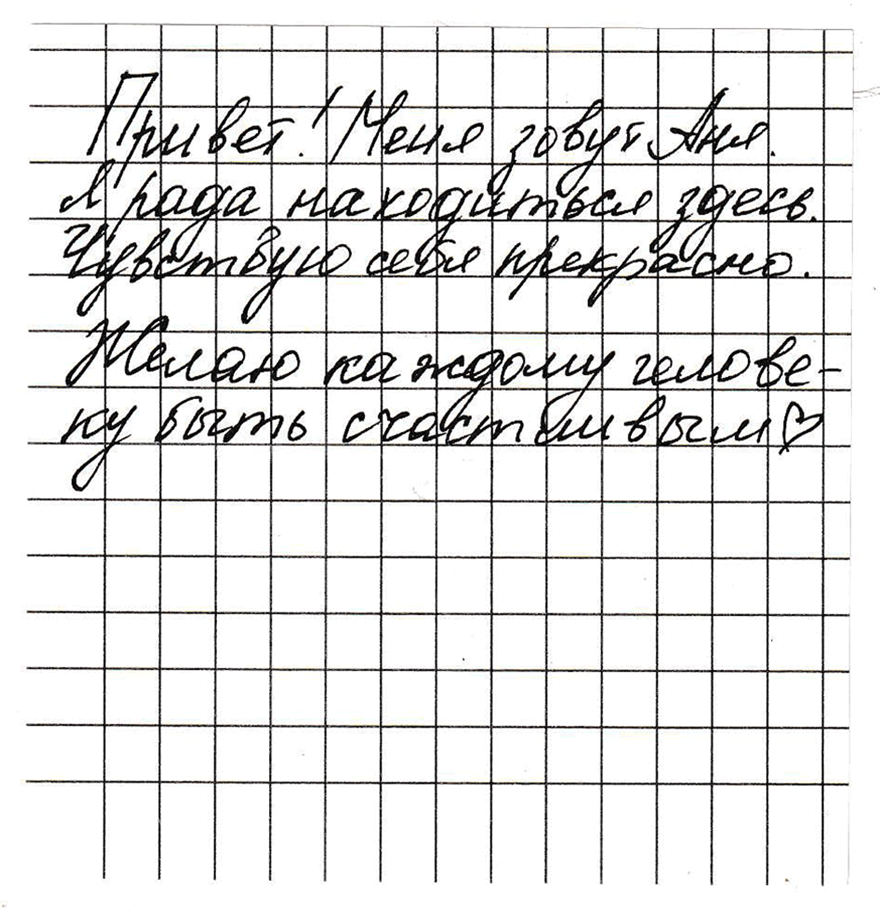 Привет! Меня зовут Аня.
Я рада находиться здесь.
Чувствую себя прекрасно.
Желаю каждому челове-
ку быть счастливым♡